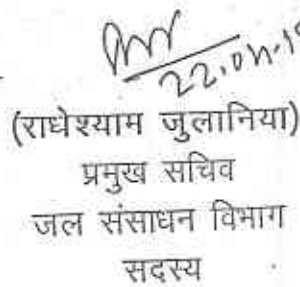 (राधेश्याम जुलानिया)
प्रमुख सचिव
जल संसाधन विभाग
सदस्य